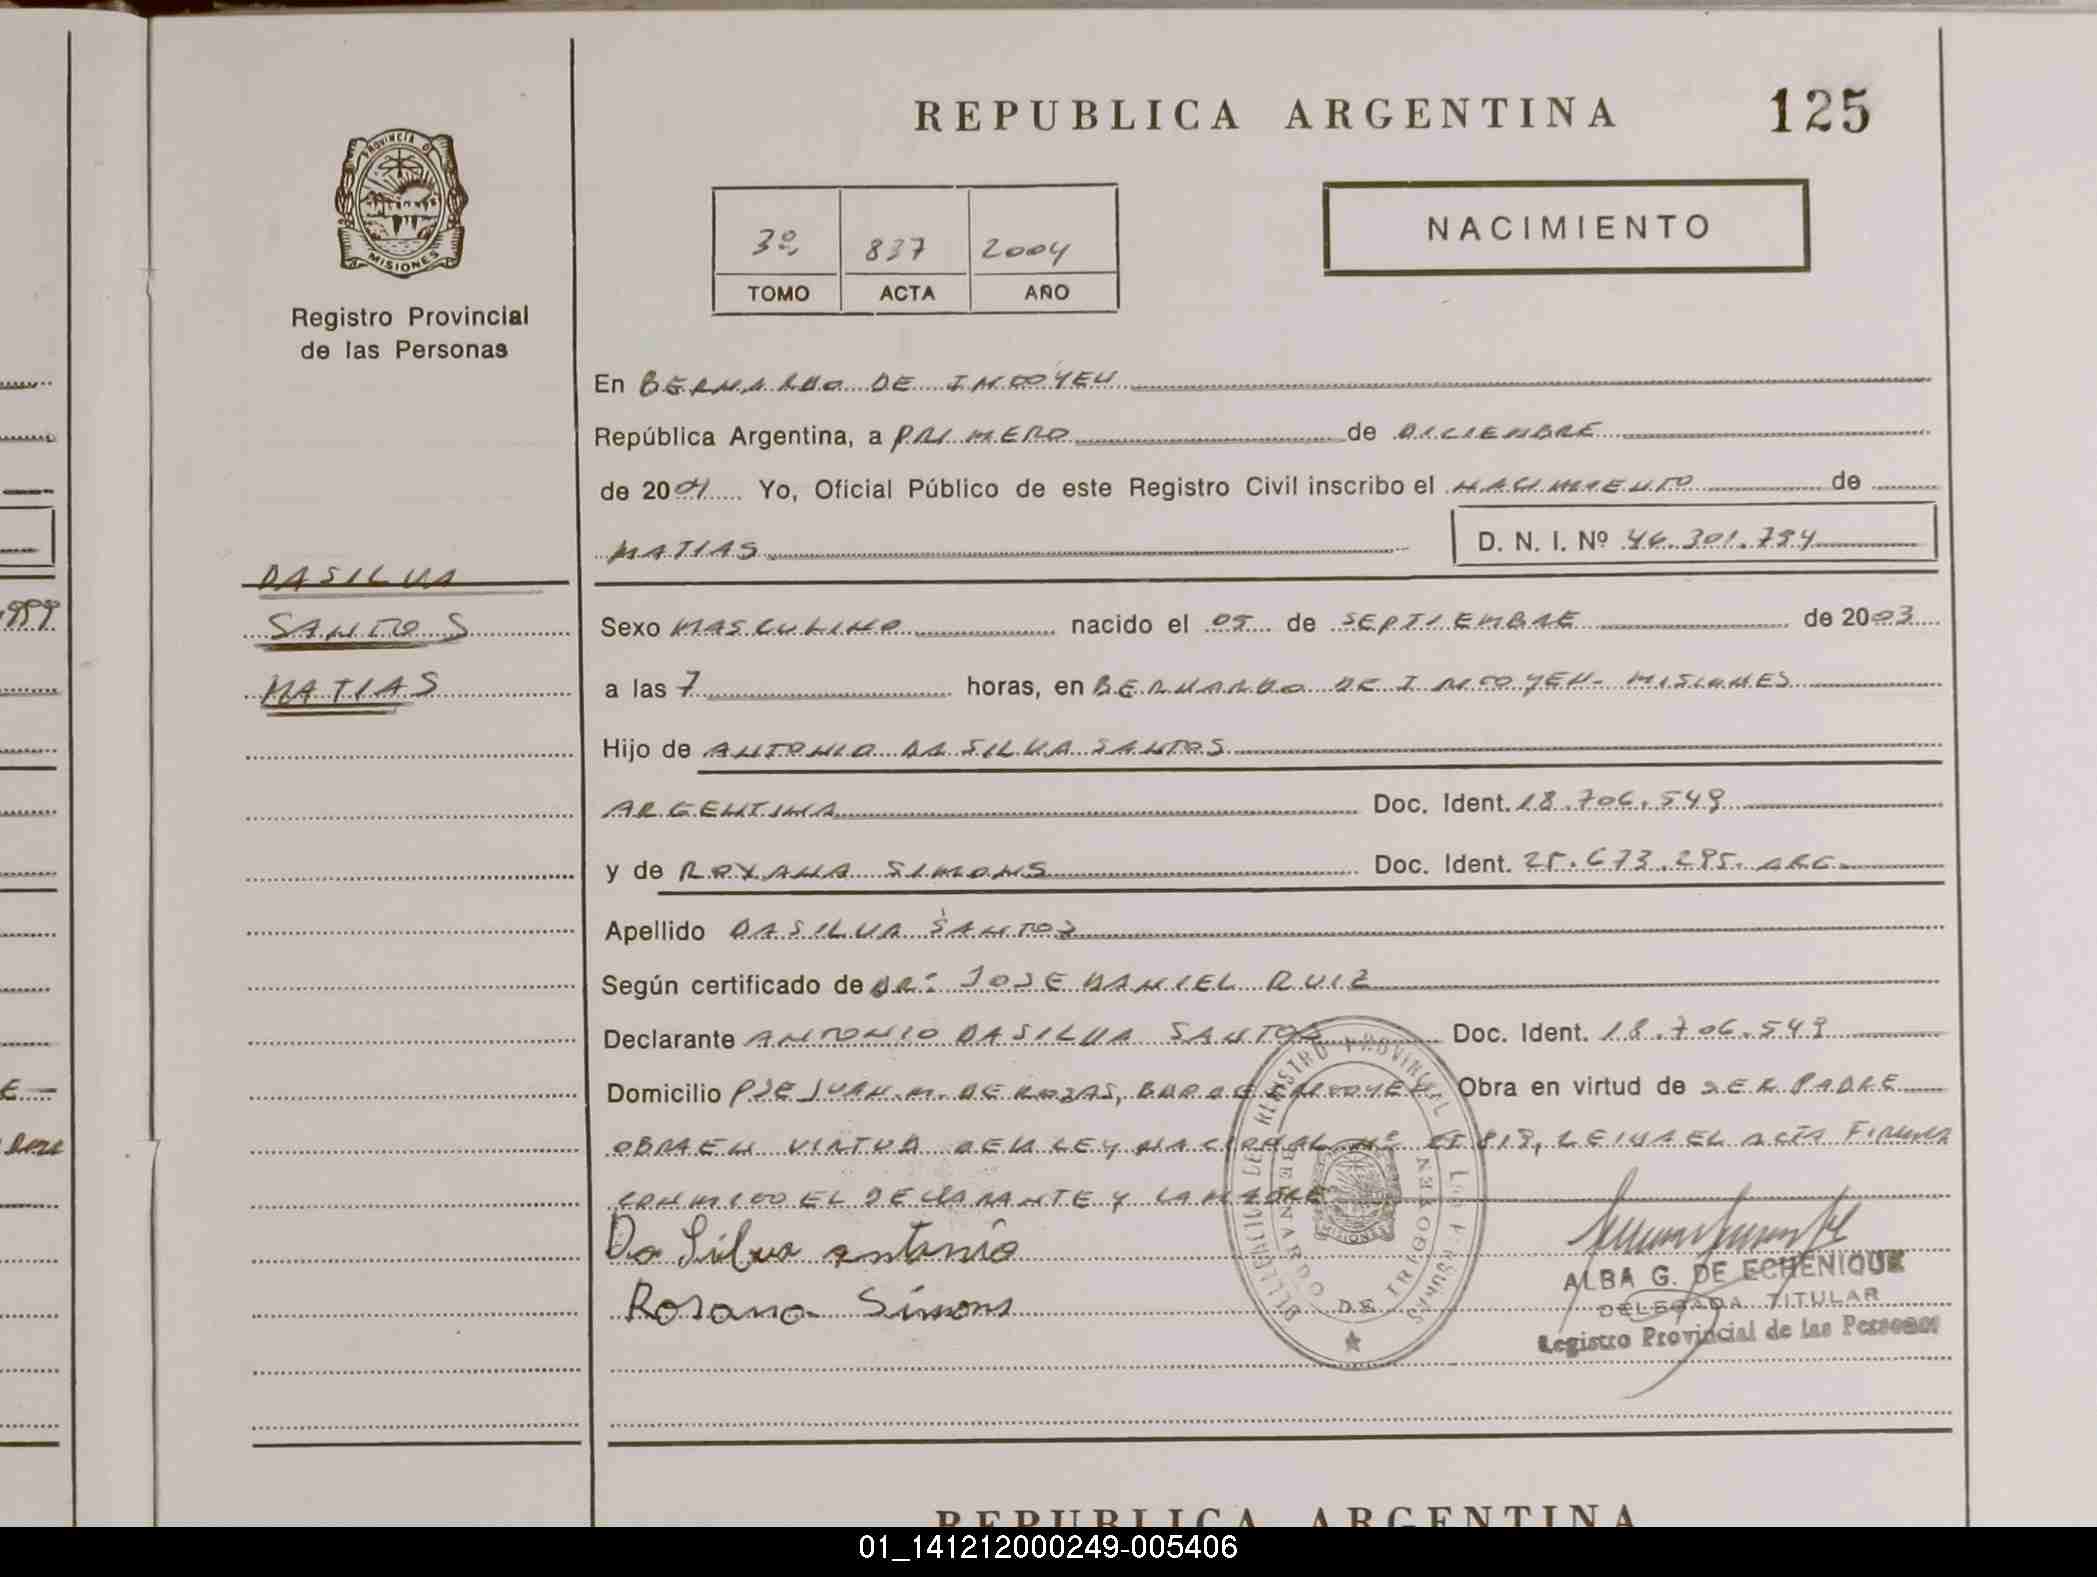 REPUBLICA ARGENTINA 125
NACIMIENTO
PROVINCIA D
MISIONES
Registro Provincial
de las Personas
3º 837 2004
TOMO ACTA AÑO
En BERNARDO DE IRIGOYEN
República Argentina, a PRIMERO de DICIEMBRE
de 2004 Yo, Oficial Público de este Registro Civil inscribo el NACIMIENTO de
MATIAS D. N. I. Nº 46.301.794
DASILVA
SANTOS
MATIAS
Sexo MASCULINO nacido el 05 de SEPTIEMBRE de 2003
a las 7 horas, en BERNARDO DE IRIGOYEN- MISIONES
Hijo de ANTONIO DA SILVA SANTOS
ARGENTINA Doc. Ident. 18.706.549
y de ROXANA SIMONS Doc. Ident. 25.673.295- ARG-
Apellido DASILVA SANTOS
Según certificado de DR: JOSE DANIEL RUIZ
Declarante ANTONIO DASILVA SANTOS Doc. Ident. 18.706.549
Domicilio PJE JUAN.M. DE ROZAS, BDO DE IRIGOYEN Obra en virtud de SER PADRE
OBRA EN VIRTUD DE LA LEY NACIONAL Nº 25819, LEIDA EL ACTA FIRMAN
CONMIGO EL DECLARANTE Y LA MADRE
Da Silva antonio
Rosana Simons
DELEGACION DEL REGISTRO PROVINCIAL DE LAS PERSONAS
BERNARDO DE IRIGOYEN
MISIONES
ALBA G. DE ECHENIQUE
DELEGADA TITULAR
Registro Provincial de las Personas
REPUBLICA ARGENTINA
01_141212000249-005406